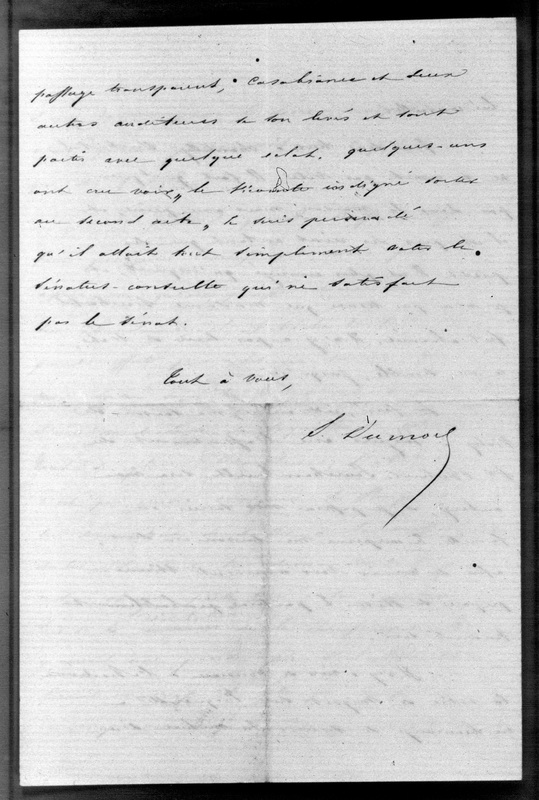 passage transparent, Casabianca et deux
autres auditeurs se sont levés et sont
partis avec quelque éclat. quelques-uns
ont cru voir, le indigné sortir
au second acte, je suis persuadé
qu'il allait tout simplement voter le
Sénatus-consulte qui ne satisfait
pas le Sénat.
Tout à vous,